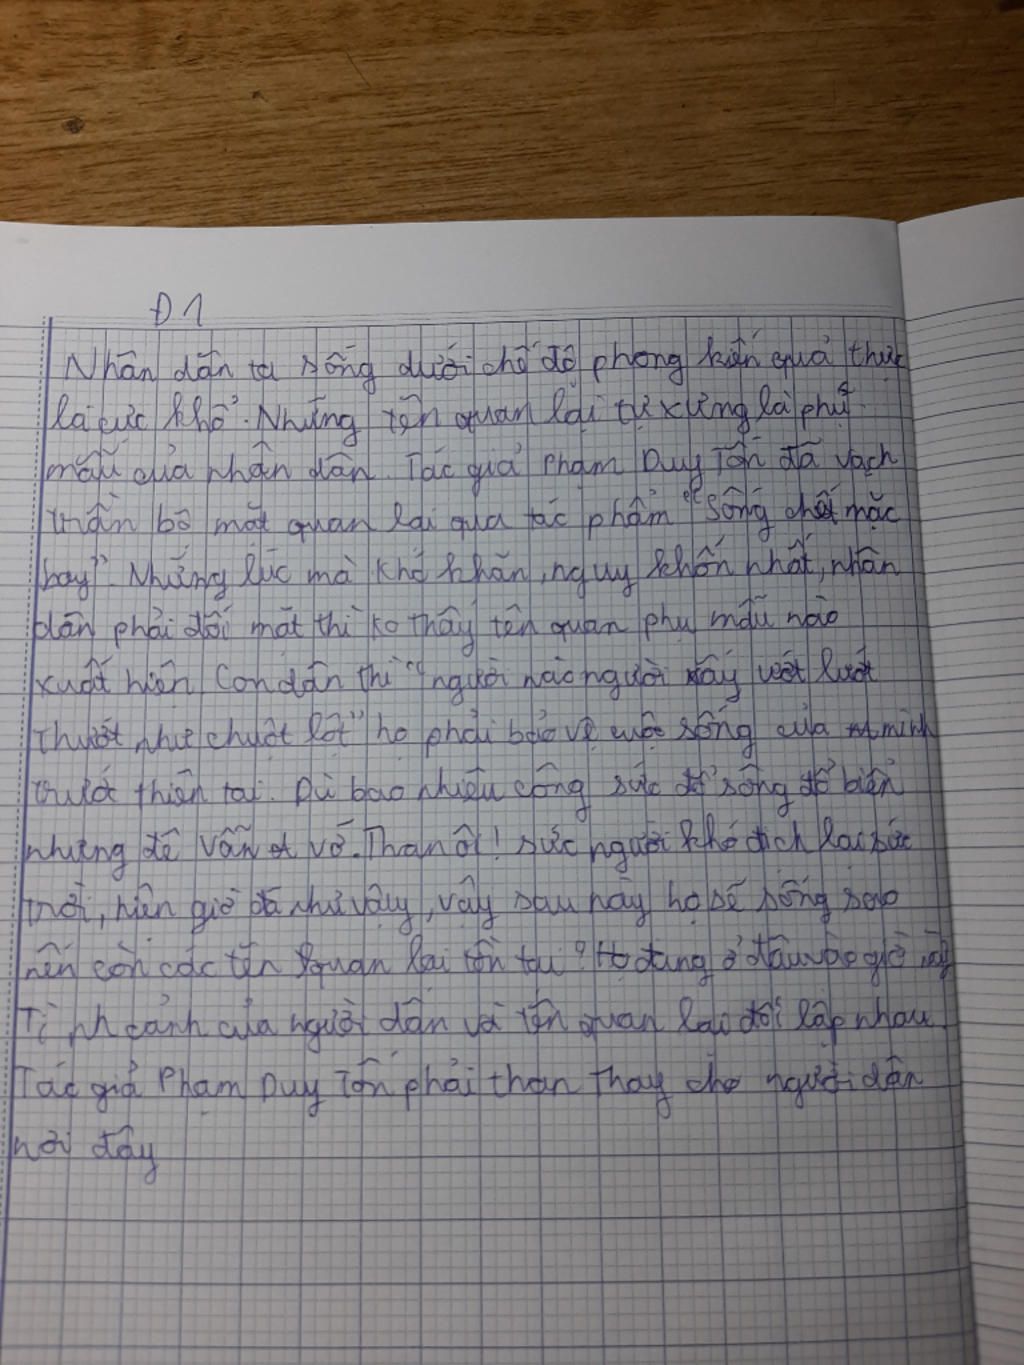 Đ1
Nhân dân ta sống dưới chế độ phong kiến quả thực
là cực khổ. Những tên quan lại tự xưng là phụ
mẫu của nhân dân. Tác giả Phạm Duy Tốn đã vạch
trần bộ mặt quan lại qua tác phẩm "Sống chết mặc
bay". Những lúc mà khó khăn, nguy khốn nhất, nhân
dân phải đối mặt thì ko thấy tên quan phụ mẫu nào
xuất hiện. Con dân thì "người nào người nấy ướt lướt
thướt như chuột lột" họ phải bảo vệ cuộc sống của mình
trước thiên tai. Dù bao nhiêu công sức đổ sông đổ biển
nhưng đê vẫn vỡ. Than ôi! Sức người khó địch lại sức
trời, hiện giờ đã như vậy, vậy sau này họ sẽ sống sao
nên còn các tên quan lại tồn tại? Họ đang ở đâu vào giờ này
Tình cảnh của người dân và tên quan lại đối lập nhau.
Tác giả Phạm Duy Tốn phải than thay cho người dân
nơi đây